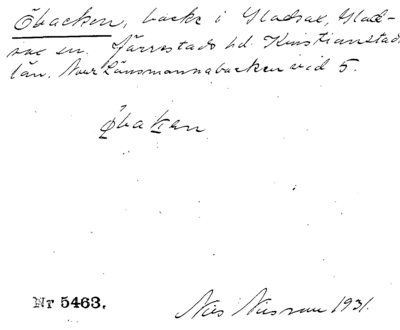 Öbacken, backe i Gladsax, Glad-
sax sn. Järrestads hd. Kristianstads
län. Länsmannabacken vid 5.
Øbaken
Nr 5463.
Nils Nilsson 1931.